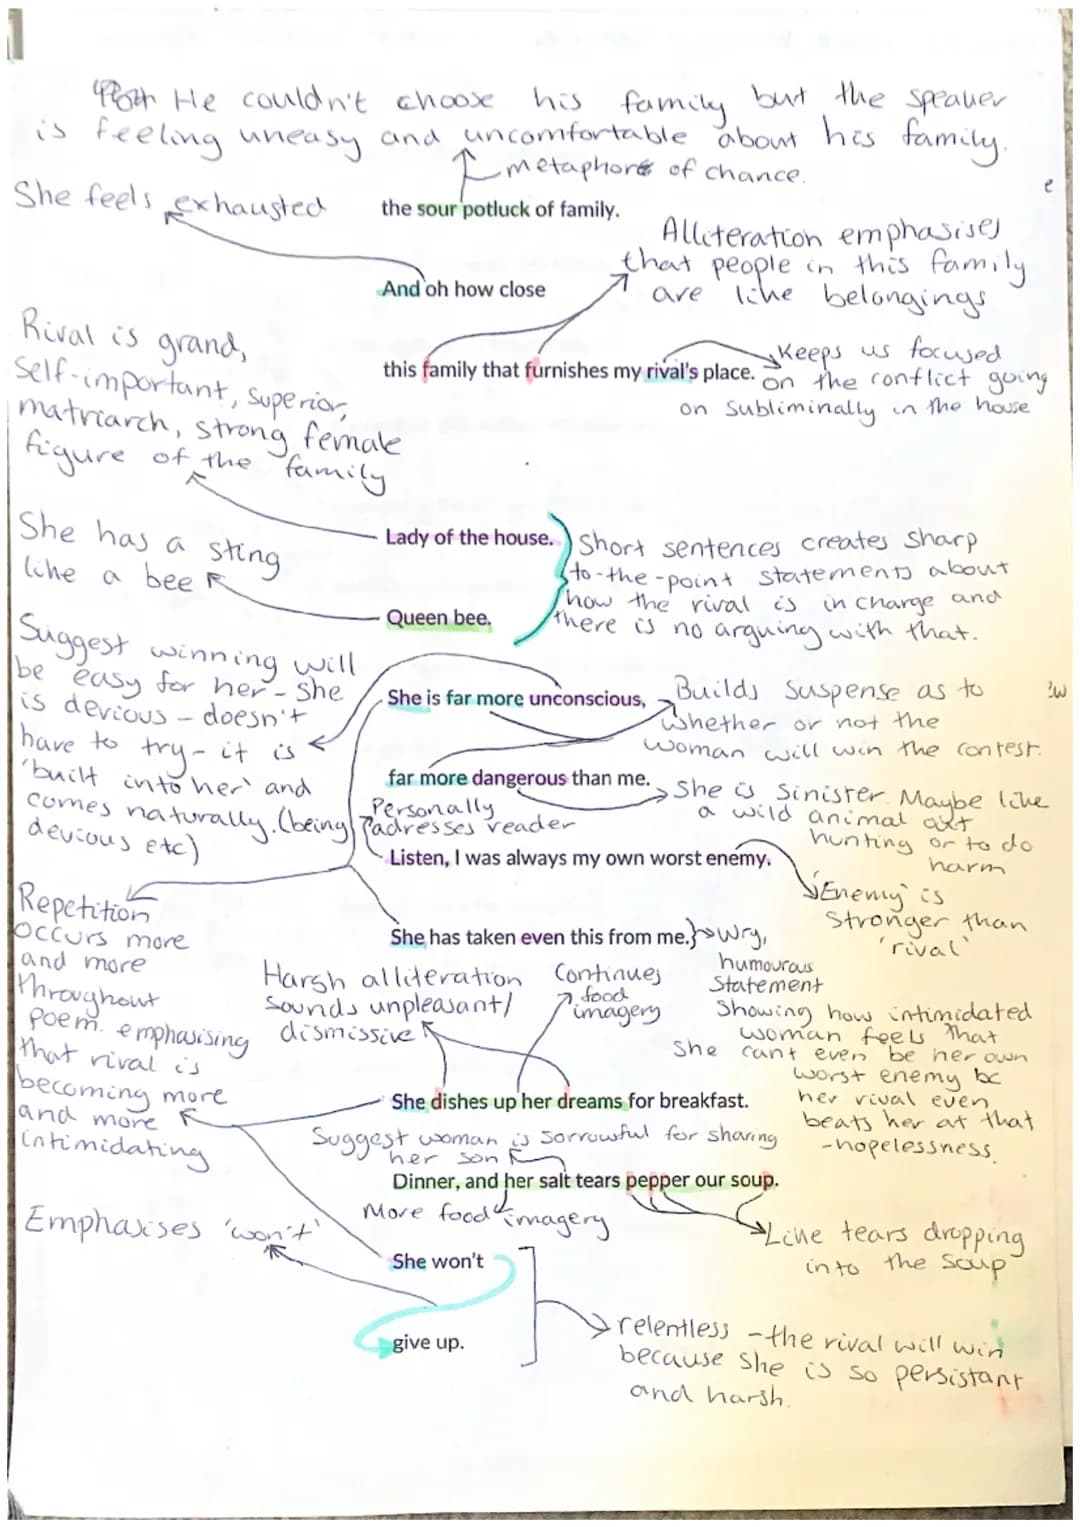 He couldn't choose his family but the speaker
is feeling uneasy and uncomfortable about his family.
metaphors of chance.
She feels exhausted
the sour potluck of family.
e
Alliteration emphasises
that people in this family
are like belongings
And oh how close
Rival is grand,
self-important, superior,
matriarch, strong female
figure of the family
this family that furnishes my rival's place.
Keeps us focused
on the conflict going
on subliminally in the house
She has a sting
like a bee
Lady of the house.
Queen bee.
Short sentences creates sharp
to-the-point statements about
how the rival is in charge and
there is no arguing with that.
Suggest winning will
be easy for her - she
is devious - doesn't
have to try - it is
'built into her' and
comes naturally. (being
devious etc)
She is far more unconscious,
Builds suspense as to
whether or not the
woman will win the contest.
far more dangerous than me.
She is sinister. Maybe like
a wild animal out
hunting or to do
harm
Personally
adresses reader
Listen, I was always my own worst enemy.
'Enemy' is
stronger than
'rival'
Repetition
occurs more
and more
throughout
poem. emphasising
that rival is
becoming more
and more
intimidating
She has taken even this from me.
Wry,
humourous
statement
showing how intimidated
woman feels that
she cant even be her own
worst enemy bc
her rival even
beats her at that
-hopelessness.
Harsh alliteration
sounds unpleasant/
dismissive
Continues
food
imagery
She dishes up her dreams for breakfast.
Suggest woman is sorrowful for sharing
her son
Dinner, and her salt tears pepper our soup.
More food imagery
Like tears dropping
into the soup
Emphasises 'won't'
She won't
give up.
relentless - the rival will win
because she is so persistant
and harsh.